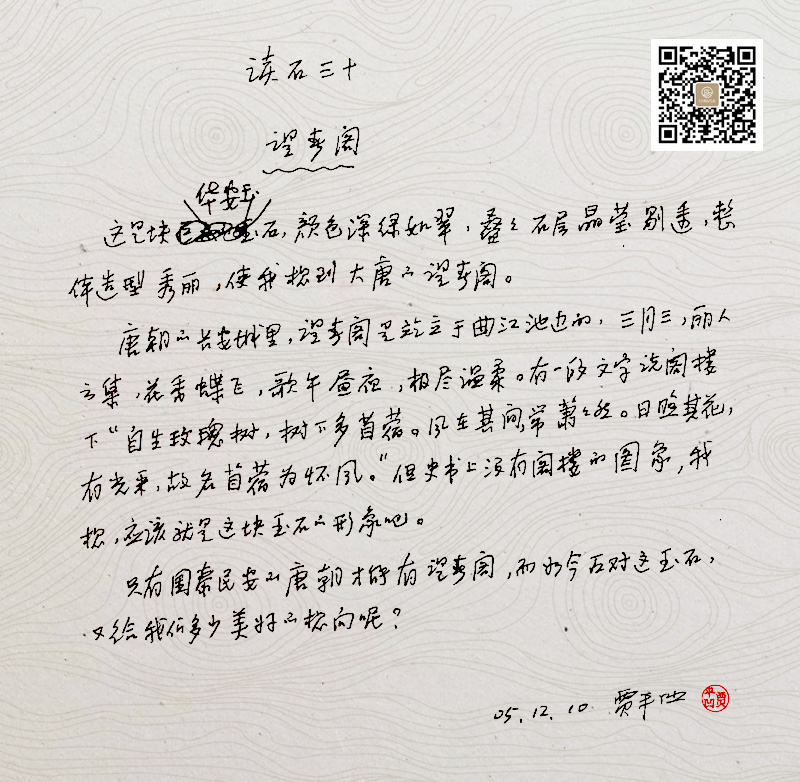 读石三十
望春阁
华安玉
这是块玉石,颜色深绿如翠,叠叠石层晶莹剔透,整
体造型秀丽,使我想到大唐的望春阁。
唐朝的长安城里,望春阁是竚立于曲江池边的,三月三,丽人
云集,花香蝶飞,歌午昼夜,极尽温柔。有一段文字说阁楼
下“自生玫瑰树,树下多苜蓿。风在其间常萧萧然。日照其花,
有光采,故名苜蓿为怀风。”但史书上没有阁楼的图象,我
想,应该就是这块玉石的形象吧。
只有国泰民安的唐朝才能有望春阁,而如今面对这玉石,
又给我们多少美好的想向呢?
05.12.10 贾平凹
贾平凹